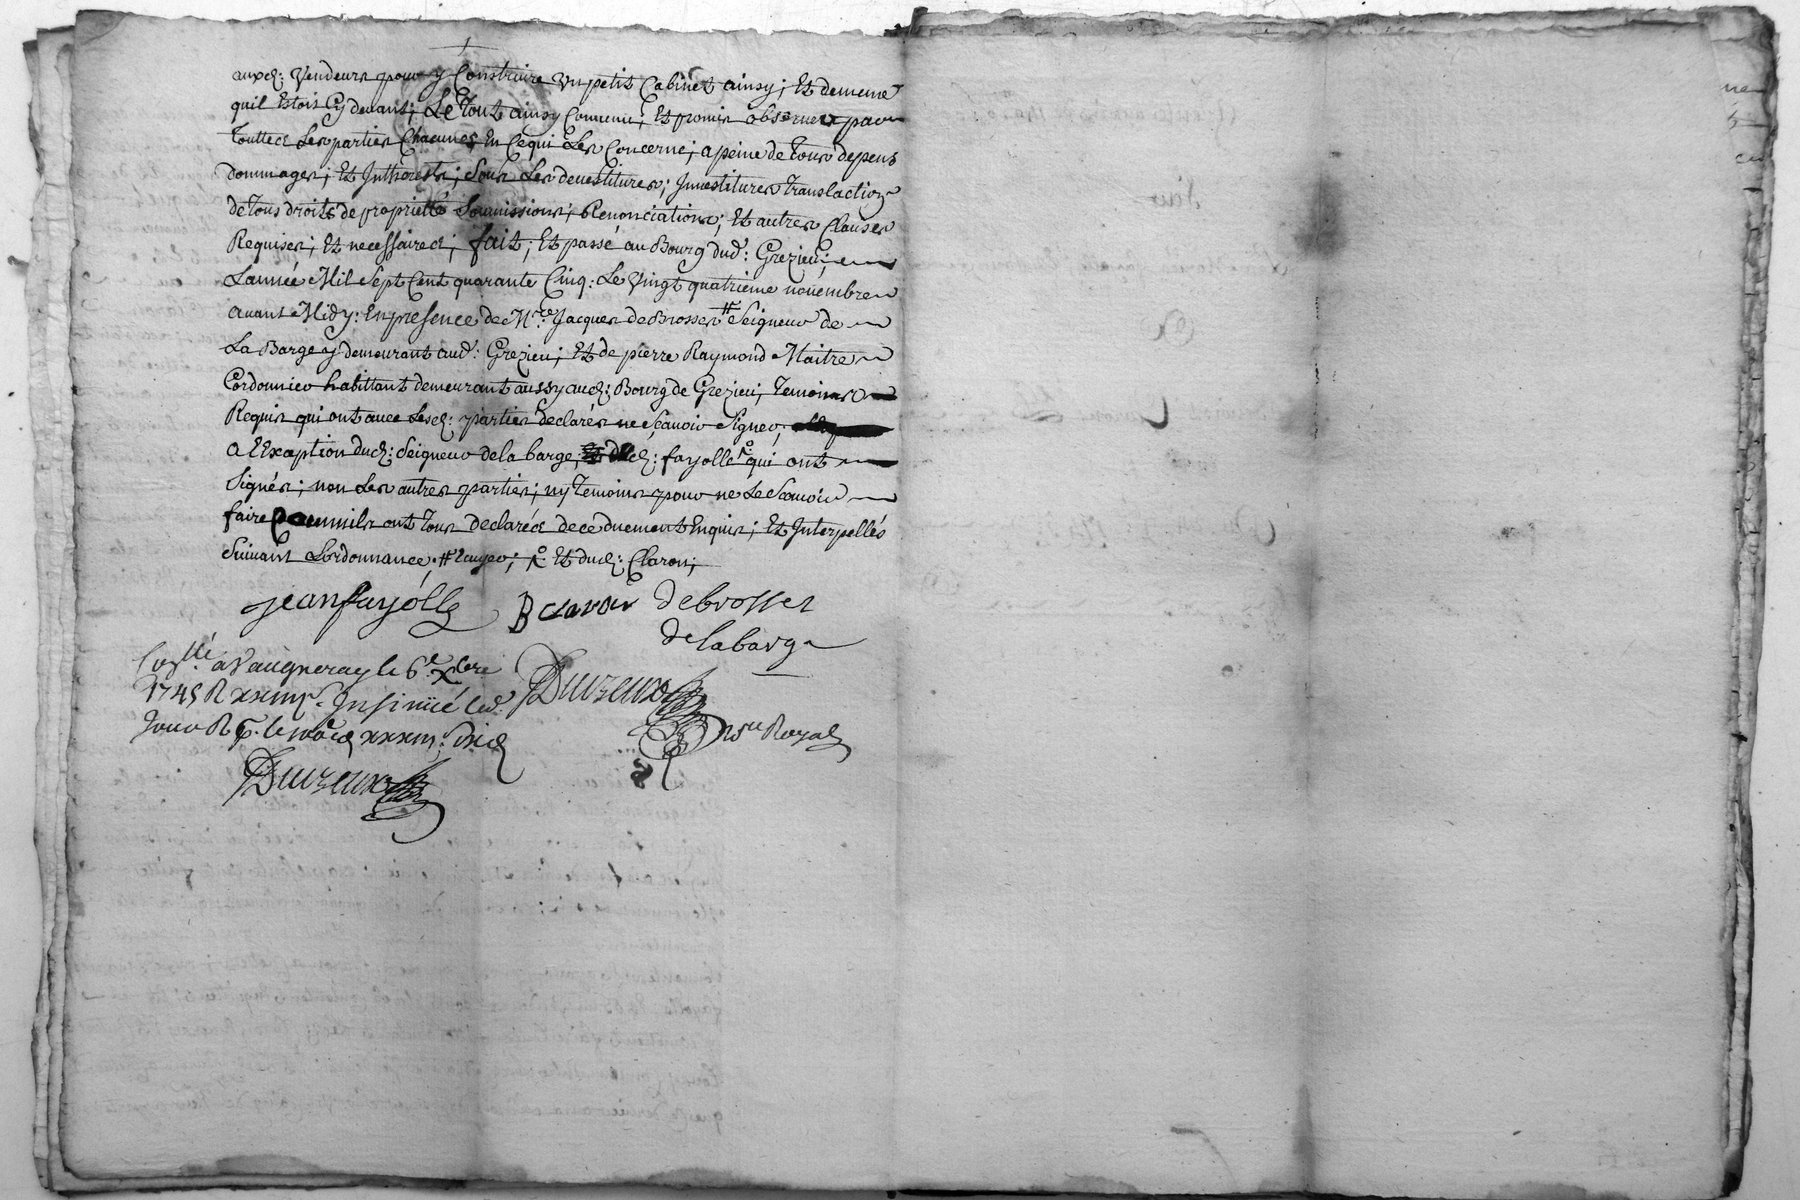 auxd: Vendeurs pour y Construire Un petit Cabinet ainsy; Et de meme
quil Estoit Cy devant; Le Tout ainsy Convenu; Et promis observer par
Touttes Les parties Chacunes En Ce qui Les Concerne; a peine de Tous depens
dommages; Et Inthérests; Sous Les devestitures; Investitures Translaction
de Tous droits de proprietté Soumissions; Renonciations; Et autres Clauses
Requises; Et necessaires; fait; Et passé au Bourg dud: Grezieu;
L'année Mil Sept Cent quarante Cinq: Le Vingt quatrieme novembre
avant Midy: En presence de Mre: Jacques de Brosses # Seigneur de
La Barge y demeurant aud: Grezieu; Et de pierre Raymond Maitre
Cordonnier habittant demeurant aussy aud: Bourg de Grezieu, Temoins
Requis qui ont avec Lesd: parties declarés ne Scavoir Signer,
a L'Exception dud: Seigneur de la barge; dud: fayolle qui ont
Signés; non Les autres parties; ny Temoins pour ne Le Scavoir
faire Comme ils ont Tous declarés de ce duement Enquis; Et Interpellés
Suivant L'ordonnance; # Ecuyer; Et dud: Claron;
jean fayolle B claron debrosses
de labarge
Coллé a Vaugneray le 6e Xbre
1745 R Insinué led.
Jour R
Duvzeux
nore Royal
Duvzeux